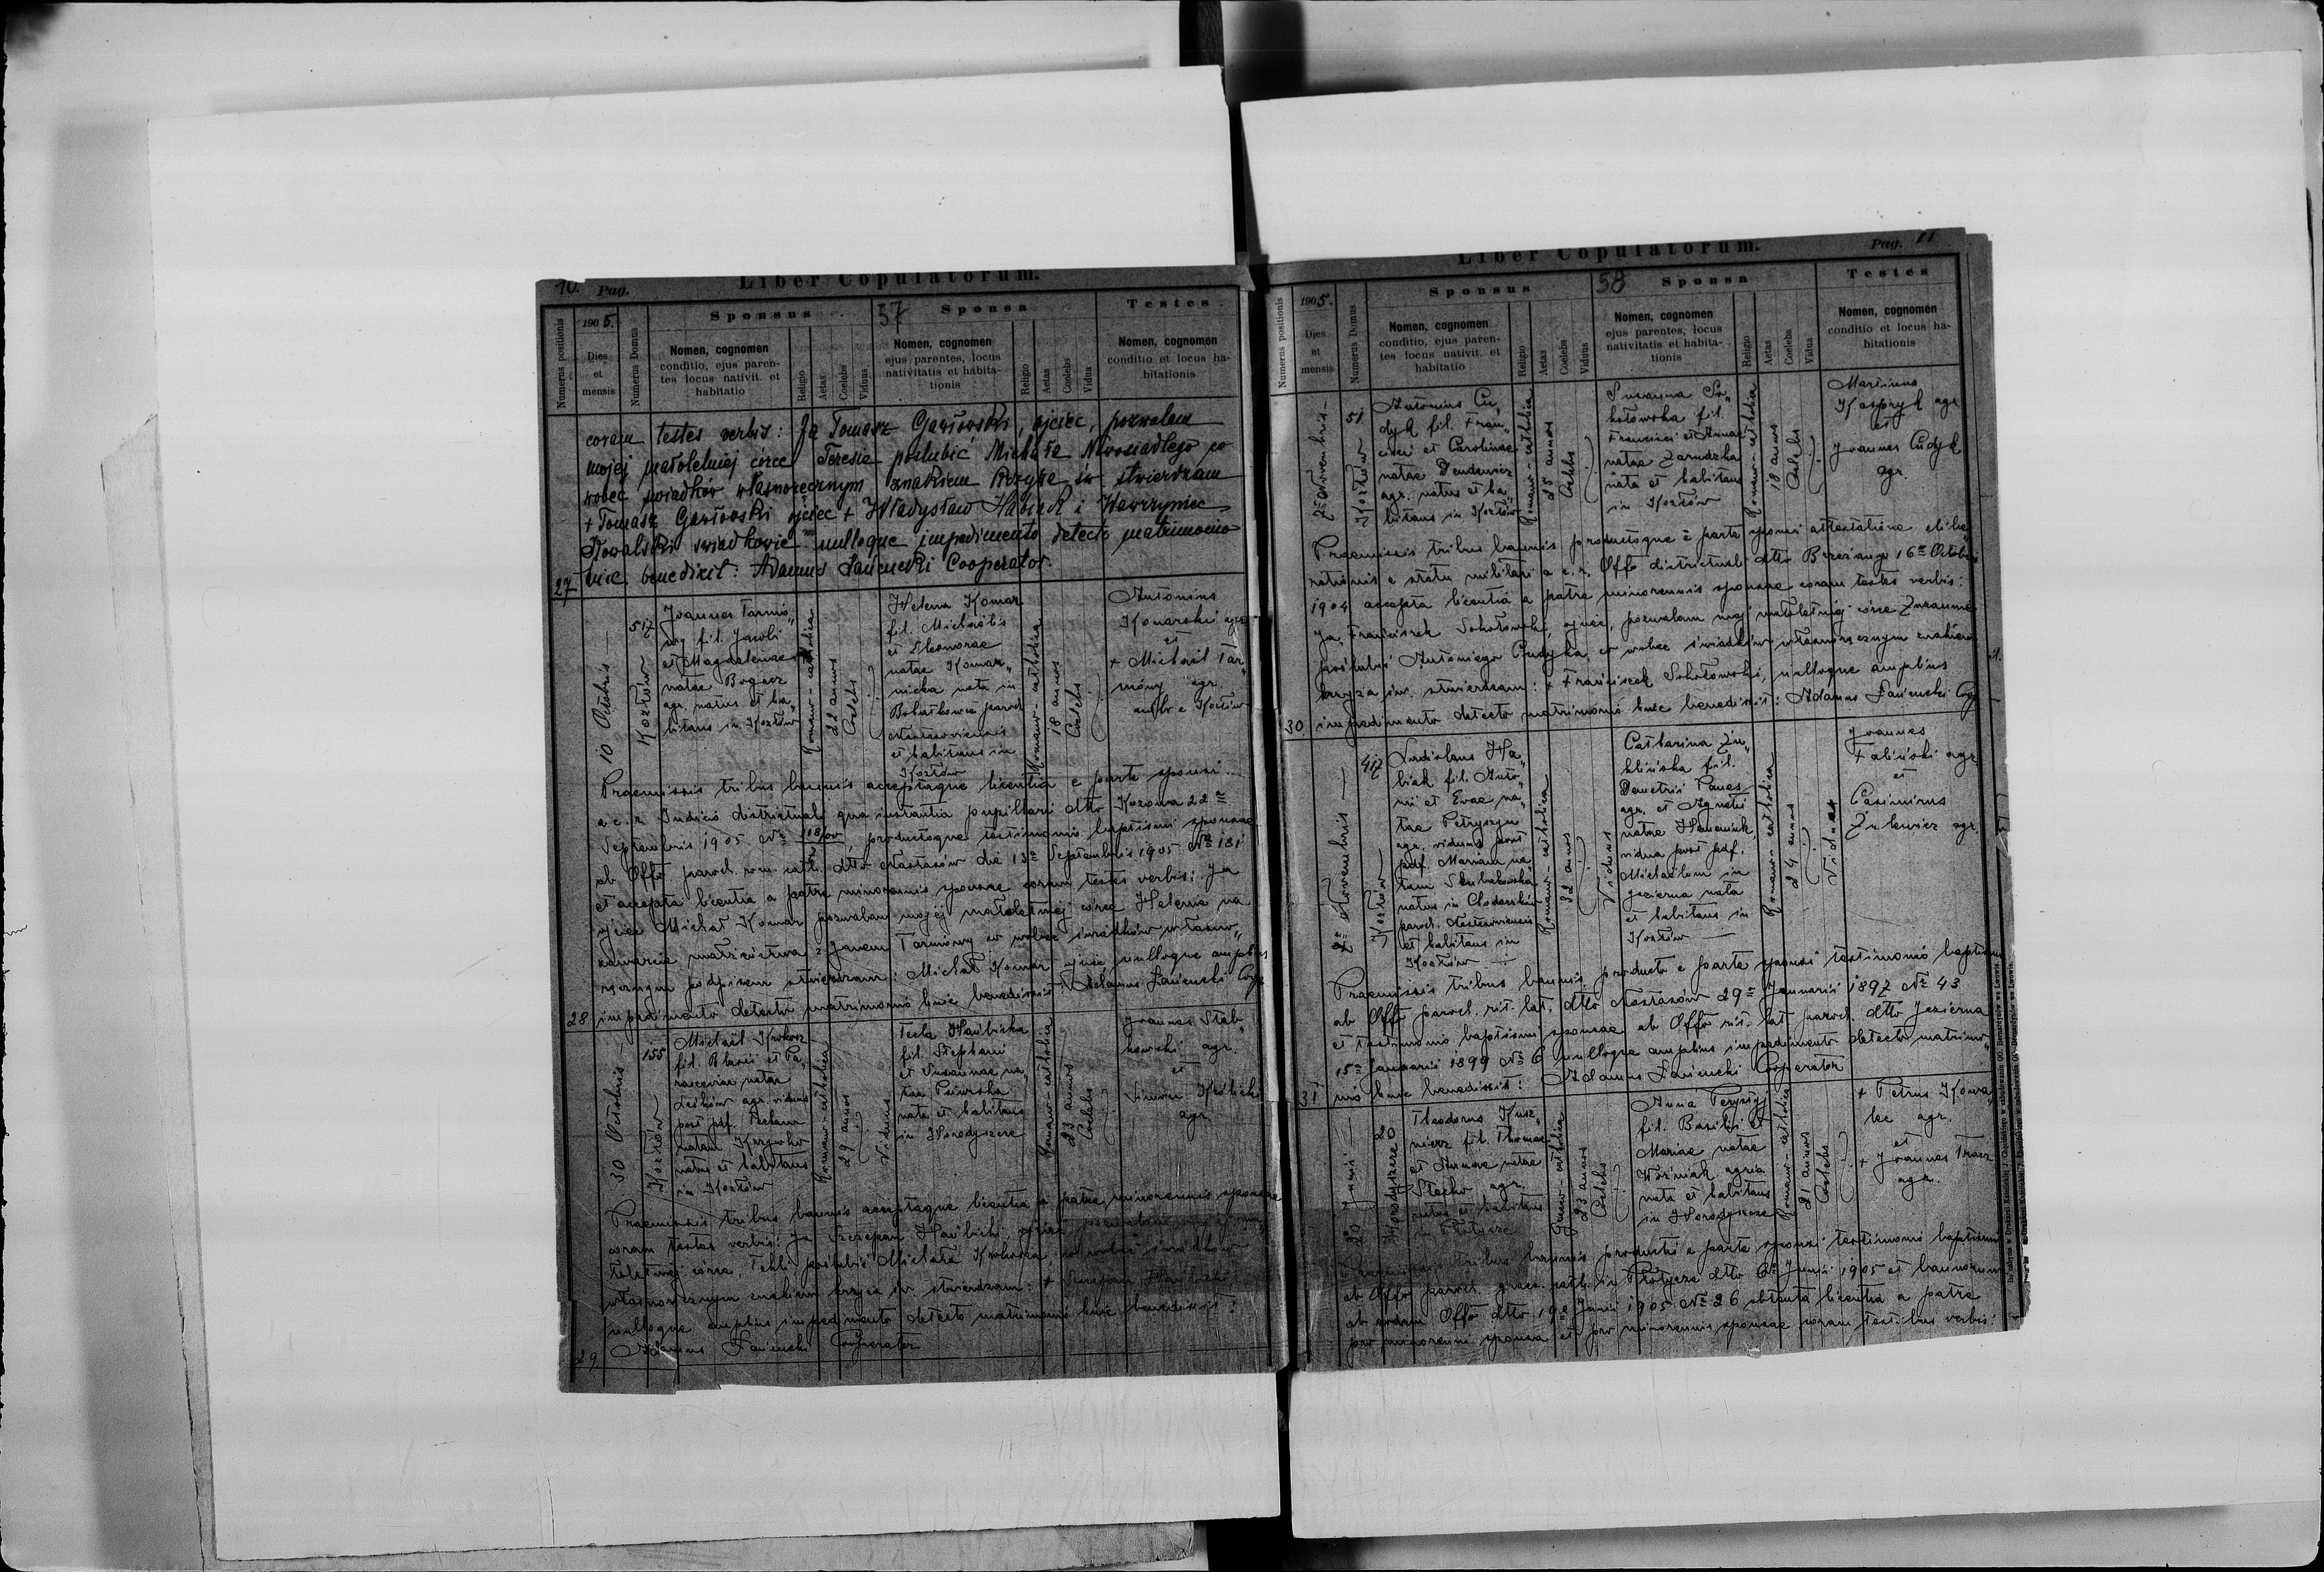 10. Pag.
Liber Copulatorum.
Numerus positionis
1905.
Dies
et
mensis
Numerus Domus
Sponsus
57
Sponsa
Testes
Nomen, cognomen
conditio, ejus paren-
tes locus nativit. et
habitatio
Religio
Aetas
Coelebs
Viduus
Nomen, cognomen
ejus parentes, locus
nativitatis et habita-
tionis
Religio
Aetas
Coelebs
Vidua
Nomen, cognomen
conditio et locus ha-
bitationis
coram testes verbis: Ja Tomasz Gawroński, ojciec, pozwalam
mojej małoletniej córce Teresie poślubić Michała Nowosiadłego co
wobec świadków własnoręcznym znakiem krzyża św. stwierdzam
+ Tomasz Gawroński ojciec + Władysław Habiak i Wawrzyniec
Kowalski świadkowie nulloque impedimento detecto matrimonio
huic benedixit: Adamus Łańcucki Cooperator.
27
10 Octobris
517
Kozłów
Joannes Tarnó„
wy fil. Jacobi
et Magdalenae
natae Bogacz
agr. natus et ha„
bitans in Kozłów
Romano-catholica
22 annos
Coelebs
Helena Komar
fil. Michaëlis
et Eleonorae
natae Komar„
nicka nata in
paroch
et habitans in
Kozłów
Romano-catholica
18 annos
Coelebs
Antonius
Konarski agr.
et
+ Michaël Tar„
nówy agr.
ambo e Kozłów
Praemissis tribus bannis acceptaque licentia e parte sponsi
a c. r. Judicio districtuali qua instantia pupillari dtto Kozowa 22ª
Septembris 1905 productoque testimonio baptismi sponsae
ab Offo paroch. rom. cath. dtto Nastasów die 13ª Septembris 1905 № 181
et accepta licentia a patre minorennis sponsae coram testes verbis: Ja
ojciec Michał Komar pozwalam mojej małoletniej córce Helenie na
zawarcie małżeństwa z Janem Tarnówy co wobec świadków własno„
ręcznym podpisem stwierdzam: Michał Komar ojciec nulloque amplius
impedimento detecto matrimonio huic benedixit: Adamus Łańcucki Coop
28
30 Octobris
155
Kozłów
Michaël
fil. Blasii et Pa„
rascevia natae
agr. viduus
post pdf.
natam
natus et habitans
in Kozłów
Romano-catholica
29 annos
Viduus
Tecla Hawbicka
fil. Stephani
et Susannae na„
tae
nata et habitans
in Horodyszcze
Romano-catholica
23 annos
Coelebs
Joannes Stab„
kowski agr.
et
Simeon
agr.
Praemissis tribus bannis acceptaque licentia a patre minorennis sponsae
coram testes verbis: Ja Szczepan Hawbicki, ojciec pozwalam mojej ma„
łoletniej córce, Tekli poślubić Michała co wobec świadków
własnoręcznym znakiem krzyża św. stwierdzam: + Szczepan Hawbicki
nulloque amplius impedimento detecto matrimonio huic benedixit:
Adamus Łańcucki Cooperator
29
Liber Copulatorum.
Pag. 11
Numerus positionis
1905.
Dies
et
mensis
Numerus Domus
Sponsus
58
Sponsa
Testes
Nomen, cognomen
conditio, ejus paren-
tes locus nativit. et
habitatio
Religio
Aetas
Coelebs
Viduus
Nomen, cognomen
ejus parentes, locus
nativitatis et habita-
tionis
Religio
Aetas
Coelebs
Vidua
Nomen, cognomen
conditio et locus ha-
bitationis
2ª Novembris
51
Kozłów
Antonius Cu„
dyk fil. Fran„
cisci et Carolinae
natae Dendewicz
agr. natus et ha„
bitans in Kozłów
Romano-catholica
25 annos
Coelebs
Susanna So„
kołowska fil.
Francisci et Annae
natae Zarudzka
nata et habitans
in Kozłów
Romano-catholica
18 annos
Coelebs
Martinus
Kaspryk agr
et
Joannes Cudyk
agr.
Praemissis tribus bannis productoque e parte sponsi attestatione libe„
rationis e statu militari a c. r. Offo districtuali dtto Brzeżany 16ª Octobris
1904 accepta licentia a patre minorennis sponsae coram testes verbis:
Ja Franciszek Sokołowski, ojciec, pozwalam mej małoletniej córce Zuzannie
poślubić Antoniego Cudyka, co wobec świadków własnoręcznym znakiem
krzyża św. stwierdzam: + Franciszek Sokołowski, nulloque amplius
impedimento detecto matrimonio huic benedixit: Adamus Łańcucki Coop
30.
2ª Novembris
417
Kozłów
Ladislaus Ha„
biak fil. Anto„
ni et Evae na„
tae Petryszyn
agr. viduus post
pdf. Mariam na„
tam
natus in
paroch. Nastasoviensis
et habitans in
Kozłów
Romano-catholica
32 annos
Viduus
Catharina Zu„
klińska fil.
Demetrii Panas
agr. et Agnetis
natae
vidua post pdf.
Michaëlem in
Jezierna nata
et habitans in
Kozłów
Romano-catholica
24 annos
Vidua
Joannes
Faliński agr.
et
Casimirus
Zulewicz agr.
Praemissis tribus bannis, producto e parte sponsi testimonio baptismi
ab Offo paroch. rit. lat. dtto Nastasów 29ª Januarii 1897 № 43
et testimonio baptismi sponsae ab Offo rit. lat paroch. dtto Jezierna
15ª Januarii 1899 № 6 nulloque amplius impedimento detecto matrimo„
nio huic benedixit: Adamus Łańcucki Cooperator
31
20 Junii
20
Horodyszcze
Theodorus Kusz„
nierz fil. Thomae
et Annae natae
Stecko agr.
natus et habitans
in Płotycze
23 annos
Coelebs
Anna
fil. Basilii et
Mariae natae
Woźniak agria
nata et habitans
in Horodyszcze
Romano-catholica
21 annos
Coelebs
+ Petrus Kowa„
lec agr.
et
+ Joannes Tracz
agr.
Praemissis tribus bannis productis e parte sponsi testimonio baptismi
ab Offo paroch. graec. cath. in Płotycza dtto 6ª Junii 1905 et bannorum
ab eodem Offo dtto 19ª Junii 1905 № 26 obtenta licentia a patre
pro minorenni sponso et pro minorennis sponsae coram testibus verbis: